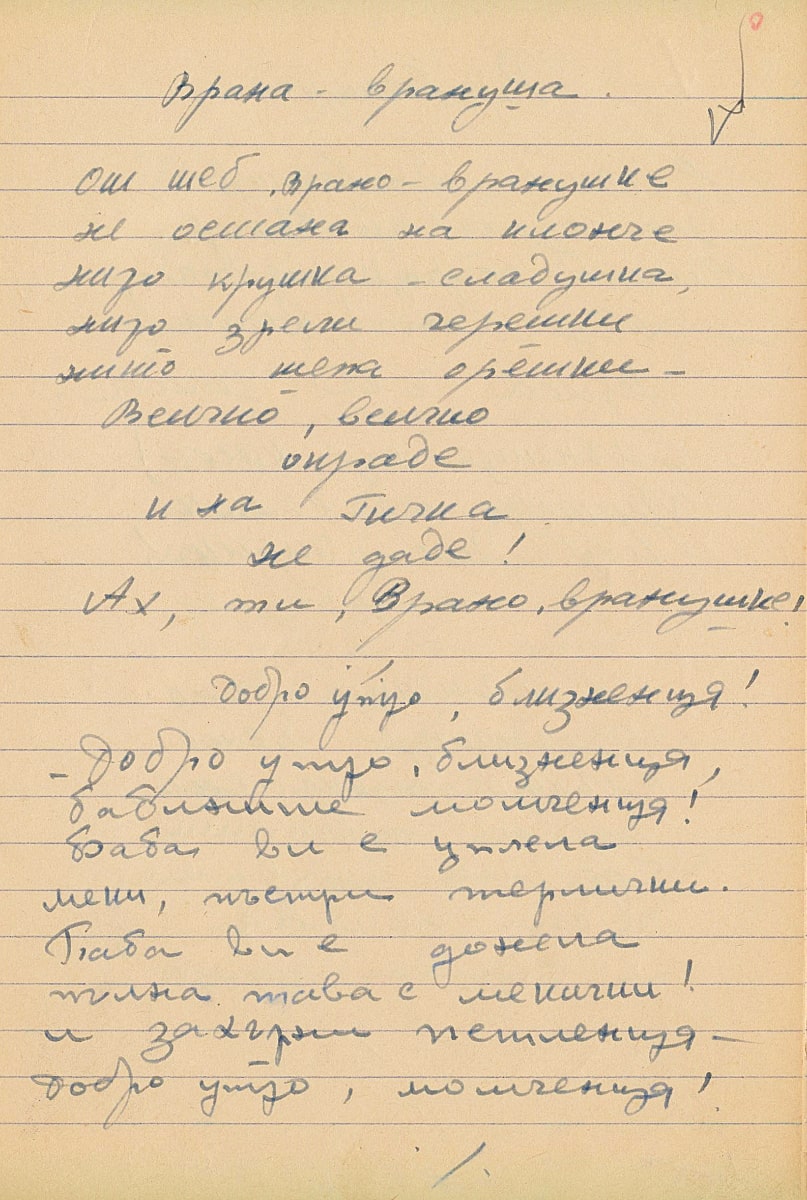 Врана - врануша.
От теб, врано - вранушке
не остана на клонче
нито крушка - сладушка,
нито зрели черешки
нито тежа орешки -
Всичко, всичко
окраде
и на Гичка
не даде!
Ах, ти, Врано, вранушке!
Добро утро, близненца!
- Добро утро, близненца,
бабините момченца!
Баба ви е уплела
меки, пъстри терлички.
Баба ви е донела
пълна тава с мекички!
и захъркт петленца -
Добро утро, момченца!